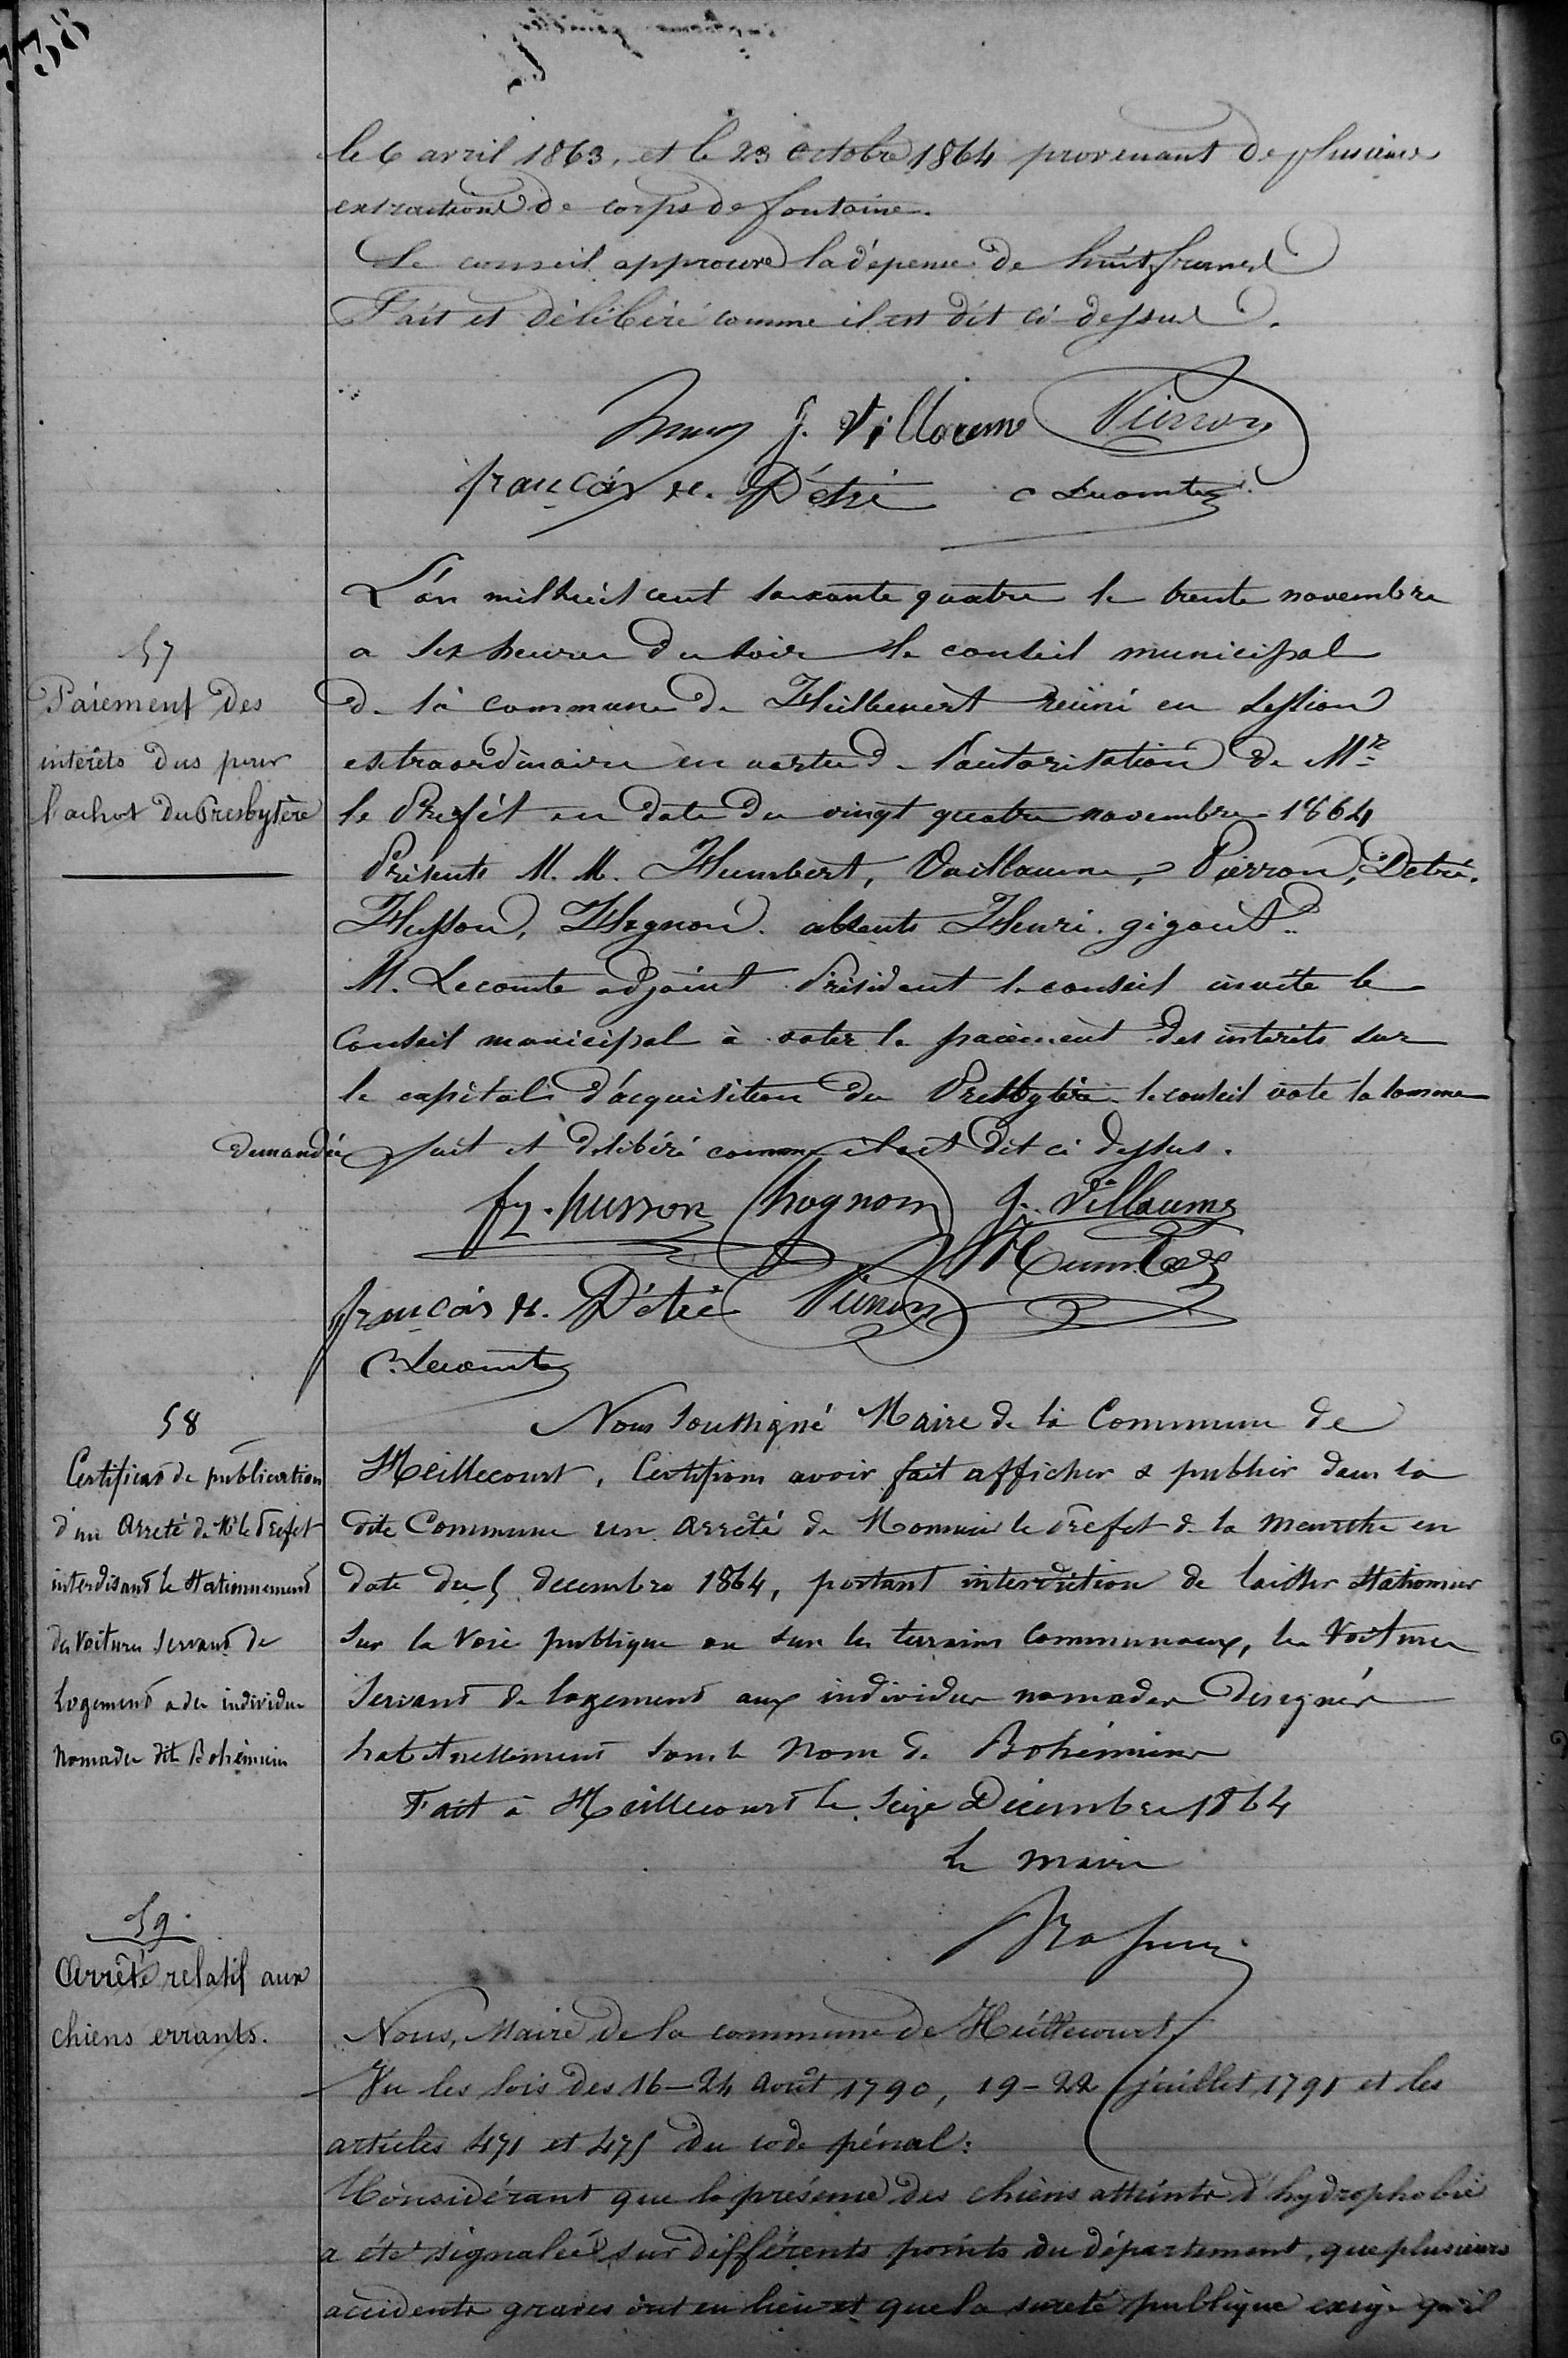 le 6 avril 1863, et le 23 Octobre 1864 provenant de plusieurs
extractions de corps de fontaine.
Le conseil approuve la dépense de huit francs
Fait et délibéré comme il est dit ci-dessus.
J. Villaume Pierron
françois x. Détré c Lecomte
57
Paiement des
intérêts dus pour
l'achat du Presbytère
L'an mil huit cent soixante quatre le trente novembre
a six heures du soir le conseil municipal
de la commune de Heillecourt réuni en session
extraordinaire en vertu de l'autorisation de Mr
le Préfét en date du vingt quatre novembre 1864
Présents M. M. Humbert, Vuillaume, Pierron, Detré,
Husson, Hognon. absents Henri. gigout
M. Lecomte adjoint Président le conseil invite le
Conseil municipal à voter le paiement des interêts sur
le capital d'acquisition du Presbytère le conseil vote la somme
demandée fait et délibéré comme il est dit ci dessus.
fz. husson hognon J. Villaume
Humbert
françois x. Détré Pierron
C. Lecomte
58
Certificat de publication
d'un Arreté de Mr le Prefet
interdisant le Stationnement
des Voitures Servant de
Logement a des individus
Nomades dits Bohémiens
Nous Soussigné Maire de la Commune de
Heillecourt, Certifions avoir fait afficher & publier dans la
dite Commune un Arreté de Monsieur le Préfet de la Meurthe en
date du 5 decembre 1864, portant interdiction de laisser Stationner
Sur la Voie publique ou sur les terrains Communaux, les Voitures
Servant de logement aux individus nomades designés
habituellement sous le Nom de Bohémiens
Fait à Heillecourt le Seize Décembre 1864
Le maire
59.
Arrêté relatif aux
chiens errants.
Nous, Maire de la commune de Heillecourt,
Vu les lois des 16-24 Août 1790, 19-22 juillet 1791 et les
articles 471 et 475 du code pénal:
Considérant que la présence des chiens atteints d'hydrophobie
a été signalée sur différents points du département, que plusieurs
accidents graves ont eu lieu et que la sureté publique exige qu'il